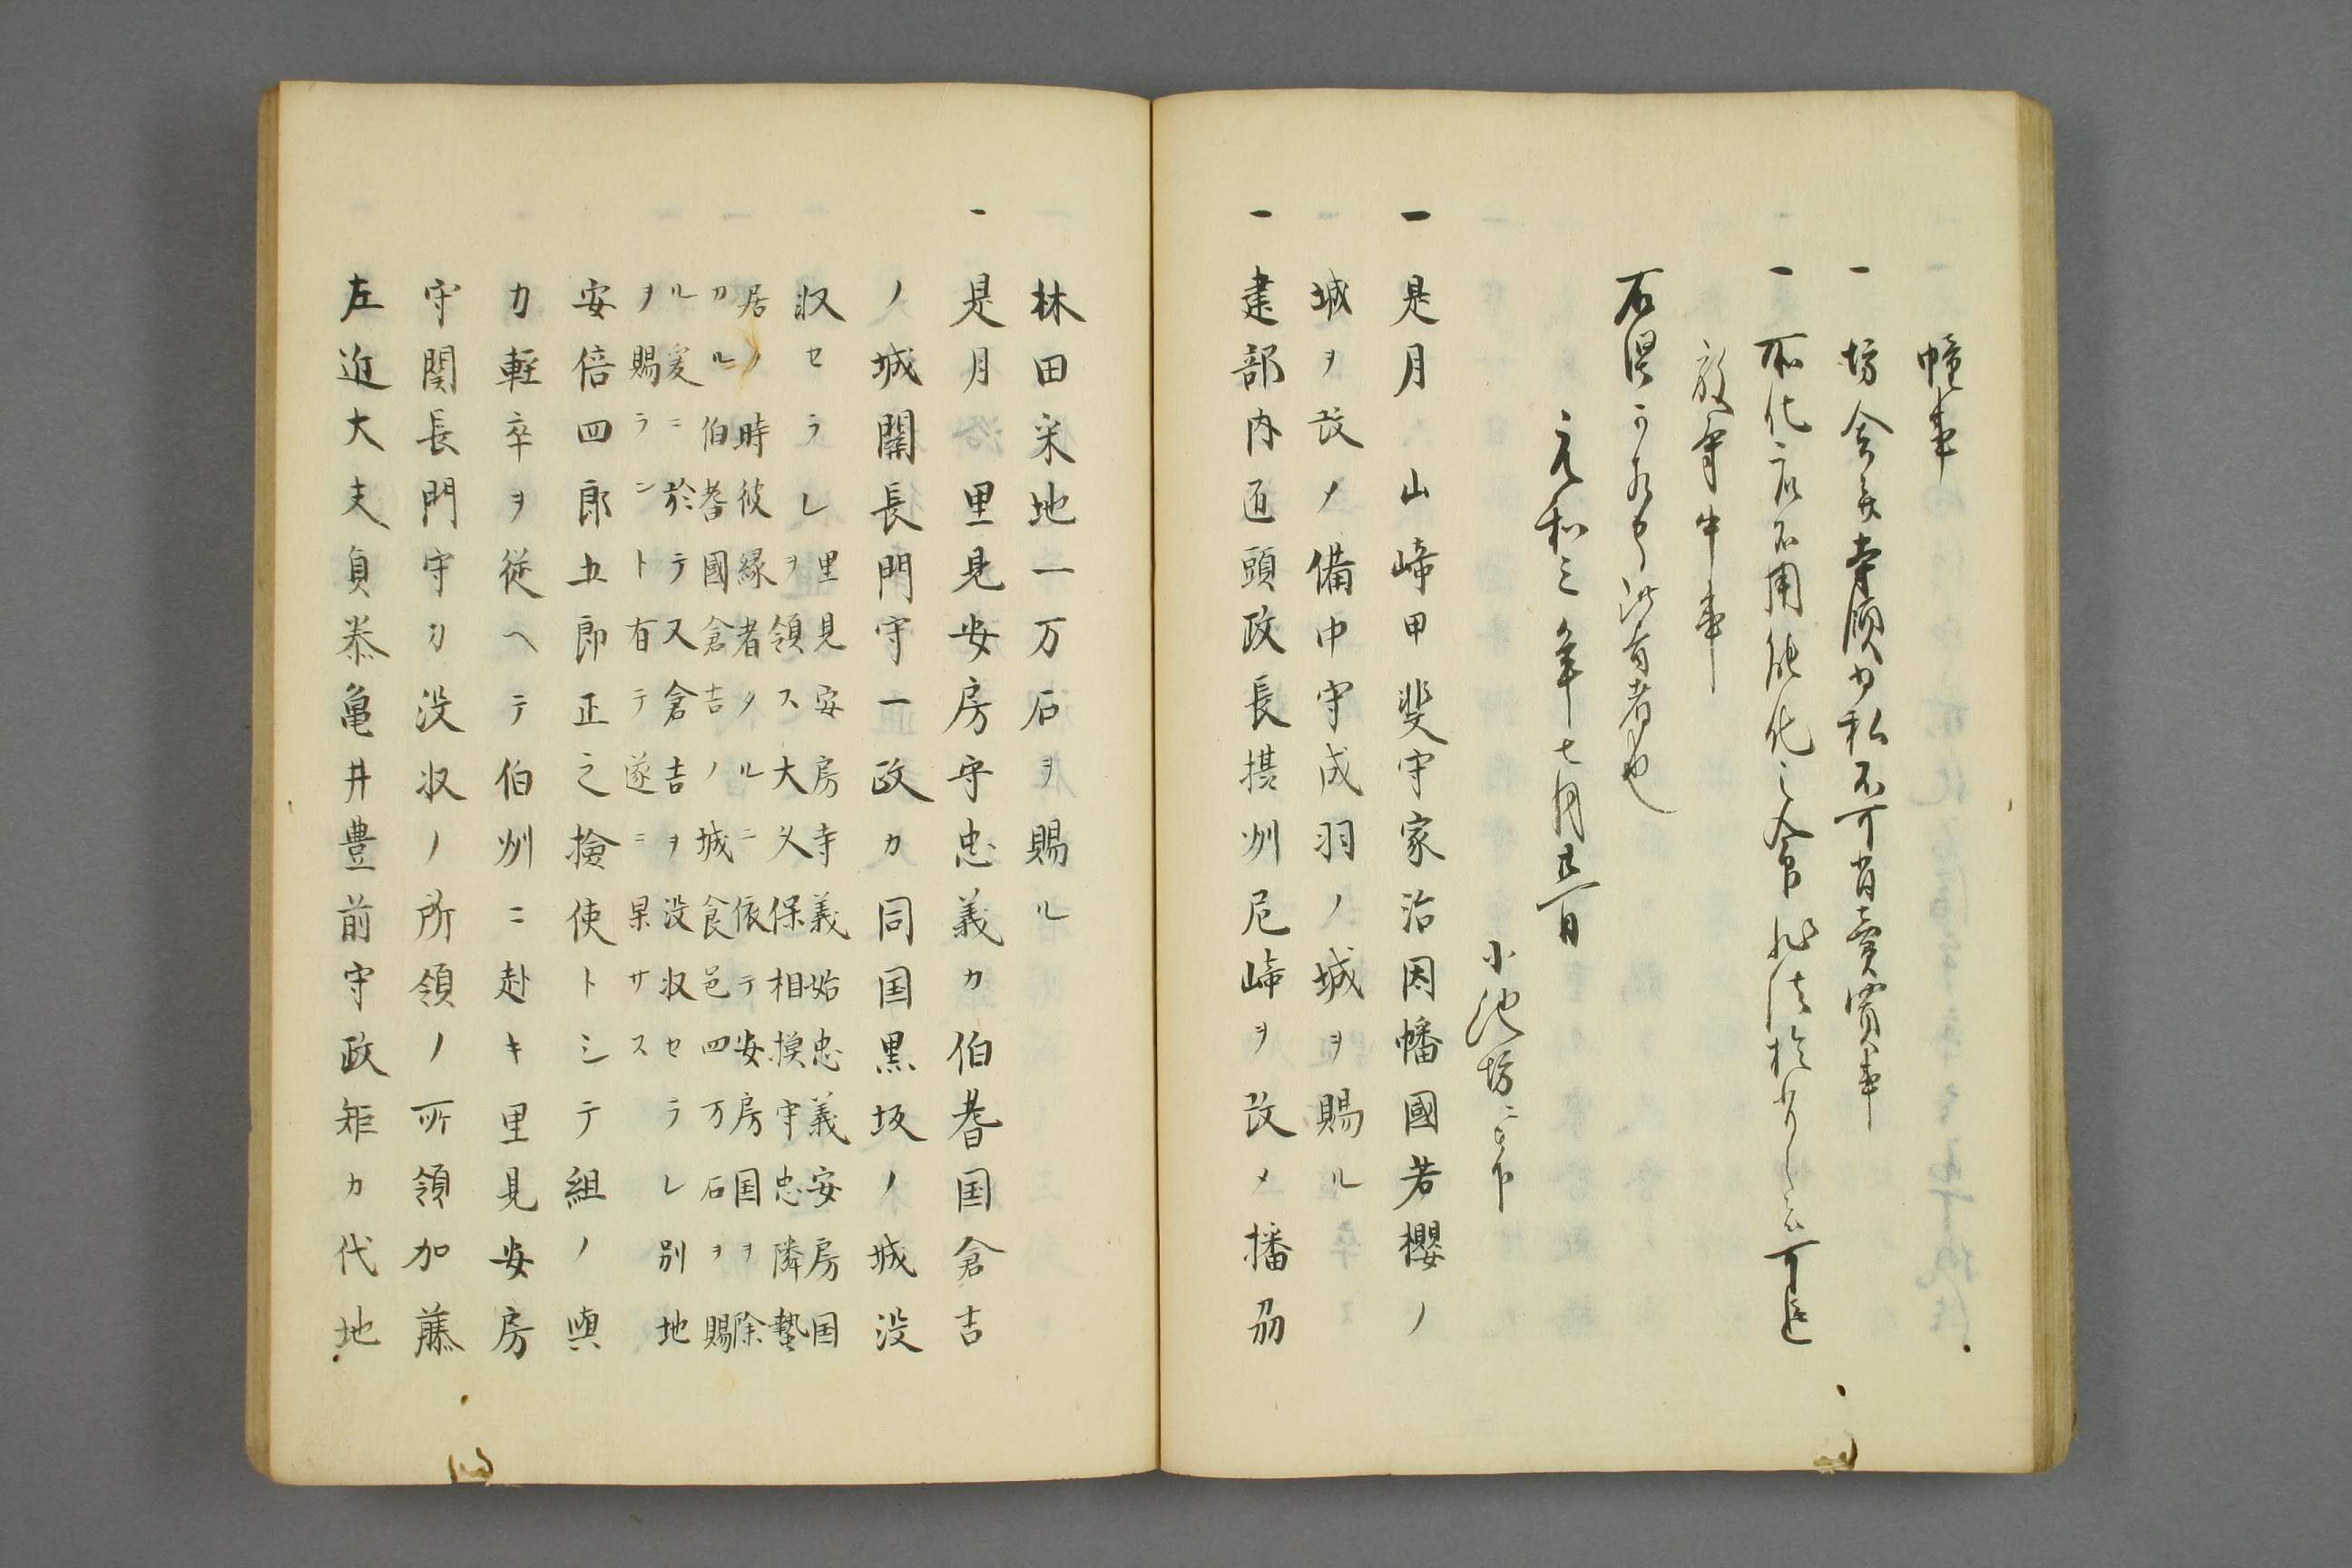 幢事
一 坊舎并寺領為私不可背売買事
一 所化衆不用能化之命非法於有之者可追
放寺中事
右得可相守此旨者也
元和三年七月廿一日
小池坊ニ下
一 是月山崎甲斐守家治因幡國若櫻ノ
城ヲ改メ備中守成羽ノ城ヲ賜ル
一 建部内匠頭政長摂州尼崎ヲ改メ播刕
林田采地一万石ヲ賜ル
一 是月里見安房守忠義カ伯耆国倉吉
ノ城関長門守一政カ同国黒坂ノ城没
収セラレ
里見安房守義始忠義安房国
ヲ領ス大久保相摸守忠隣蟄
居ノ時彼縁者タルニ依テ安房国ヲ除
カル伯耆國倉吉ノ城食邑四万石ヲ賜
ル爰ニ於テ又倉吉ヲ没収セラレ別地
ヲ賜ラント有テ遂ニ果サス
安倍四郎五郎正之撿使トシテ組ノ與
力軽卒ヲ従ヘテ伯州ニ赴キ里見安房
守関長門守カ没収ノ所領ノ所領加藤
左近大夫貞泰亀井豊前守政矩カ代地